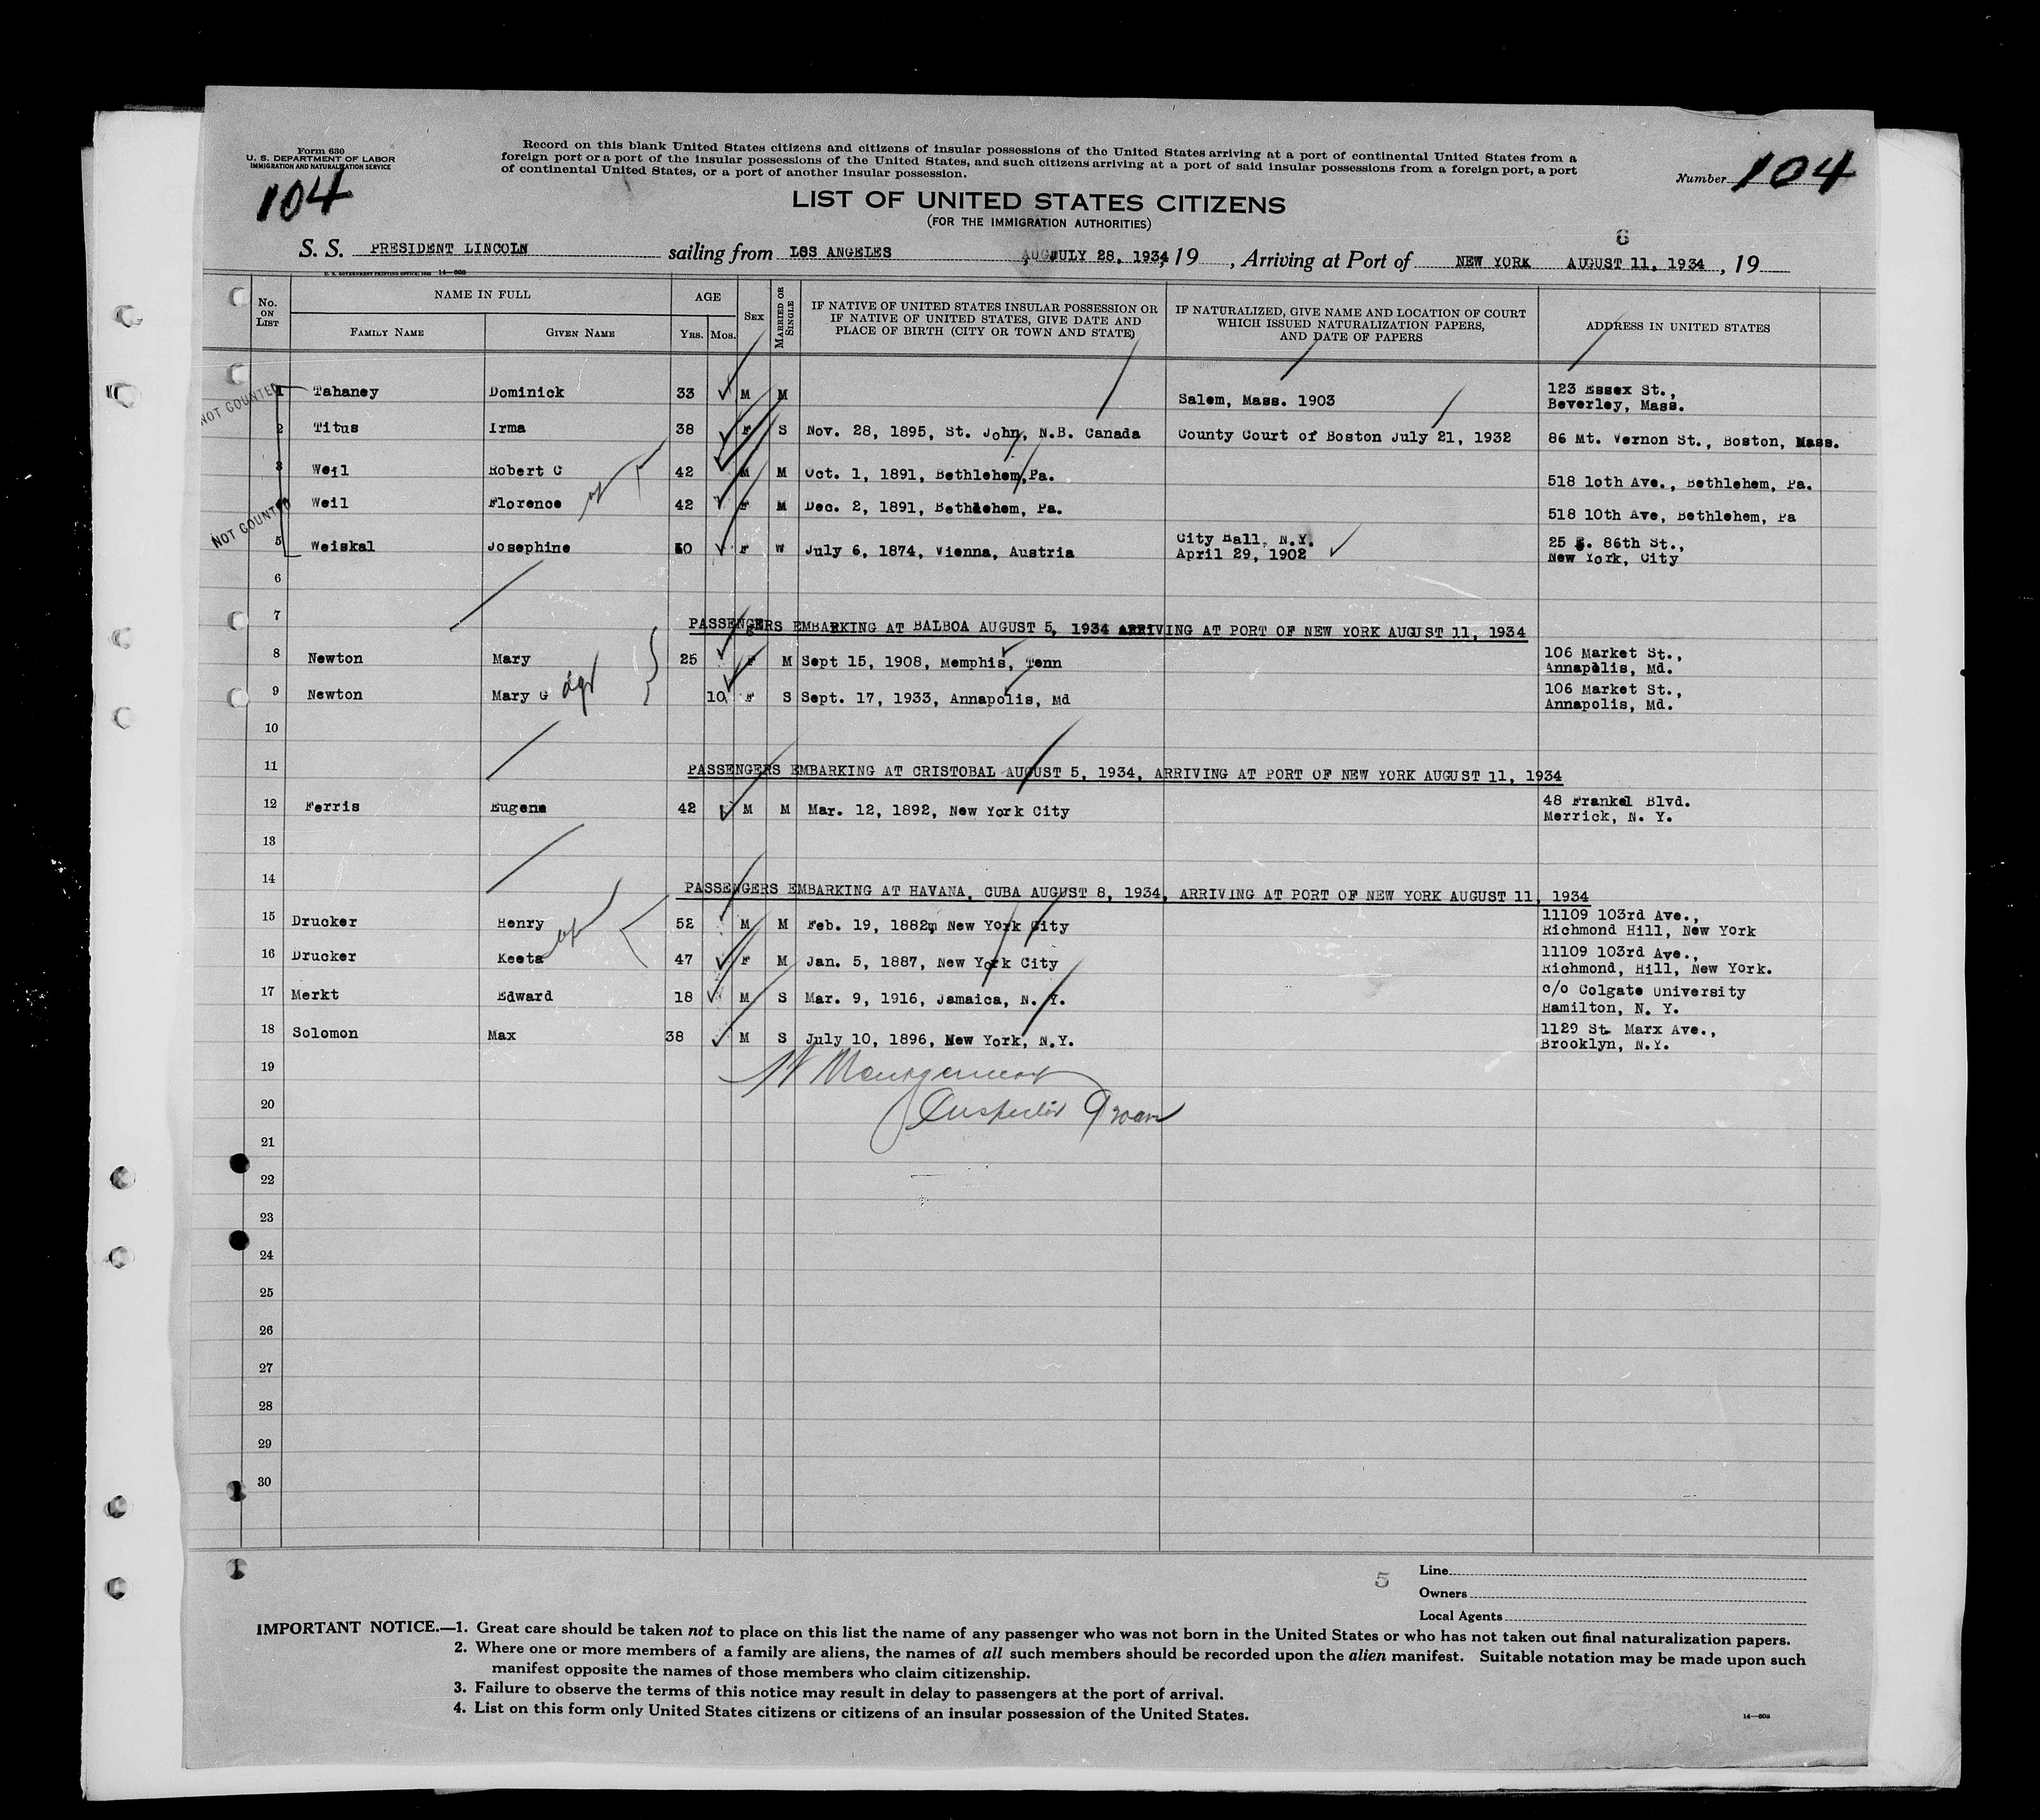 Form 630
U. S. DEPARTMENT OF LABOR
IMMIGRATION AND NATURALIZATION SERVICE
104
Record on this blank United States citizens and citizens of insular possessions of the United States arriving at a port of continental United States from a
foreign port or a port of the insular possessions of the United States, and such citizens arriving at a port of said insular possessions from a foreign port, a port
of continental United States, or a port of another insular possession.
Number 104
LIST OF UNITED STATES CITIZENS
(FOR THE IMMIGRATION AUTHORITIES)
6
S. S. PRESIDENT LINCOLN sailing from LOS ANGELES JULY 28, 1934, 19 , Arriving at Port of NEW YORK AUGUST 11, 1934 , 19
U. S. GOVERNMENT PRINTING OFFICE: 14—608
No. ON LIST
NAME IN FULL
FAMILY NAME
GIVEN NAME
AGE
YRS. MOS.
SEX
MARRIED OR SINGLE
IF NATIVE OF UNITED STATES INSULAR POSSESSION OR
IF NATIVE OF UNITED STATES, GIVE DATE AND
PLACE OF BIRTH (CITY OR TOWN AND STATE)
IF NATURALIZED, GIVE NAME AND LOCATION OF COURT
WHICH ISSUED NATURALIZATION PAPERS,
AND DATE OF PAPERS
ADDRESS IN UNITED STATES
NOT COUNTED
1 Tahaney Dominick 33 M M Salem, Mass. 1903 123 Essex St.,
Beverley, Mass.
2 Titus Irma 38 F S Nov. 28, 1895, St. John, N.B. Canada County Court of Boston July 21, 1932 86 Mt. Vernon St., Boston, Mass.
3 Weil Robert C 42 M M Oct. 1, 1891, Bethlehem, Pa. 518 10th Ave., Bethlehem, Pa.
4 Weil Florence 42 F M Dec. 2, 1891, Bethlehem, Pa. 518 10th Ave, Bethlehem, Pa
NOT COUNTED
5 Weiskal Josephine F W July 6, 1874, Vienna, Austria City Hall, N.Y.
April 29, 1902 25 E. 86th St.,
New York, City
6
7 PASSENGERS EMBARKING AT BALBOA AUGUST 5, 1934 ARRIVING AT PORT OF NEW YORK AUGUST 11, 1934
8 Newton Mary 25 F M Sept 15, 1908, Memphis, Tenn 106 Market St.,
Annapolis, Md.
9 Newton Mary G dgt 10 F S Sept. 17, 1933, Annapolis, Md 106 Market St.,
Annapolis, Md.
10
11 PASSENGERS EMBARKING AT CRISTOBAL AUGUST 5, 1934, ARRIVING AT PORT OF NEW YORK AUGUST 11, 1934
12 Ferris Eugene 42 M M Mar. 12, 1892, New York City 48 Frankel Blvd.
Merrick, N. Y.
13
14 PASSENGERS EMBARKING AT HAVANA, CUBA AUGUST 8, 1934, ARRIVING AT PORT OF NEW YORK AUGUST 11, 1934
15 Drucker Henry 52 M M Feb. 19, 1882m New York City 11109 103rd Ave.,
Richmond Hill, New York
16 Drucker Keeta 47 F M Jan. 5, 1887, New York City 11109 103rd Ave.,
Richmond, Hill, New York.
17 Merkt Edward 18 M S Mar. 9, 1916, Jamaica, N. Y. c/o Colgate University
Hamilton, N. Y.
18 Solomon Max 38 M S July 10, 1896, New York, N.Y. 1129 St. Marx Ave.,
Brooklyn, N.Y.
19
20 Inspector
21
22
23
24
25
26
27
28
29
30
5
Line
Owners
Local Agents
IMPORTANT NOTICE.—1. Great care should be taken not to place on this list the name of any passenger who was not born in the United States or who has not taken out final naturalization papers.
2. Where one or more members of a family are aliens, the names of all such members should be recorded upon the alien manifest. Suitable notation may be made upon such
manifest opposite the names of those members who claim citizenship.
3. Failure to observe the terms of this notice may result in delay to passengers at the port of arrival.
4. List on this form only United States citizens or citizens of an insular possession of the United States.
14—608